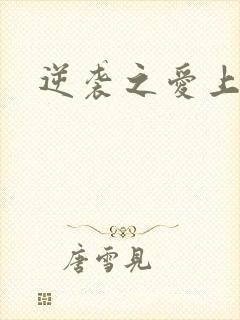 逆袭之愛上
唐雪見